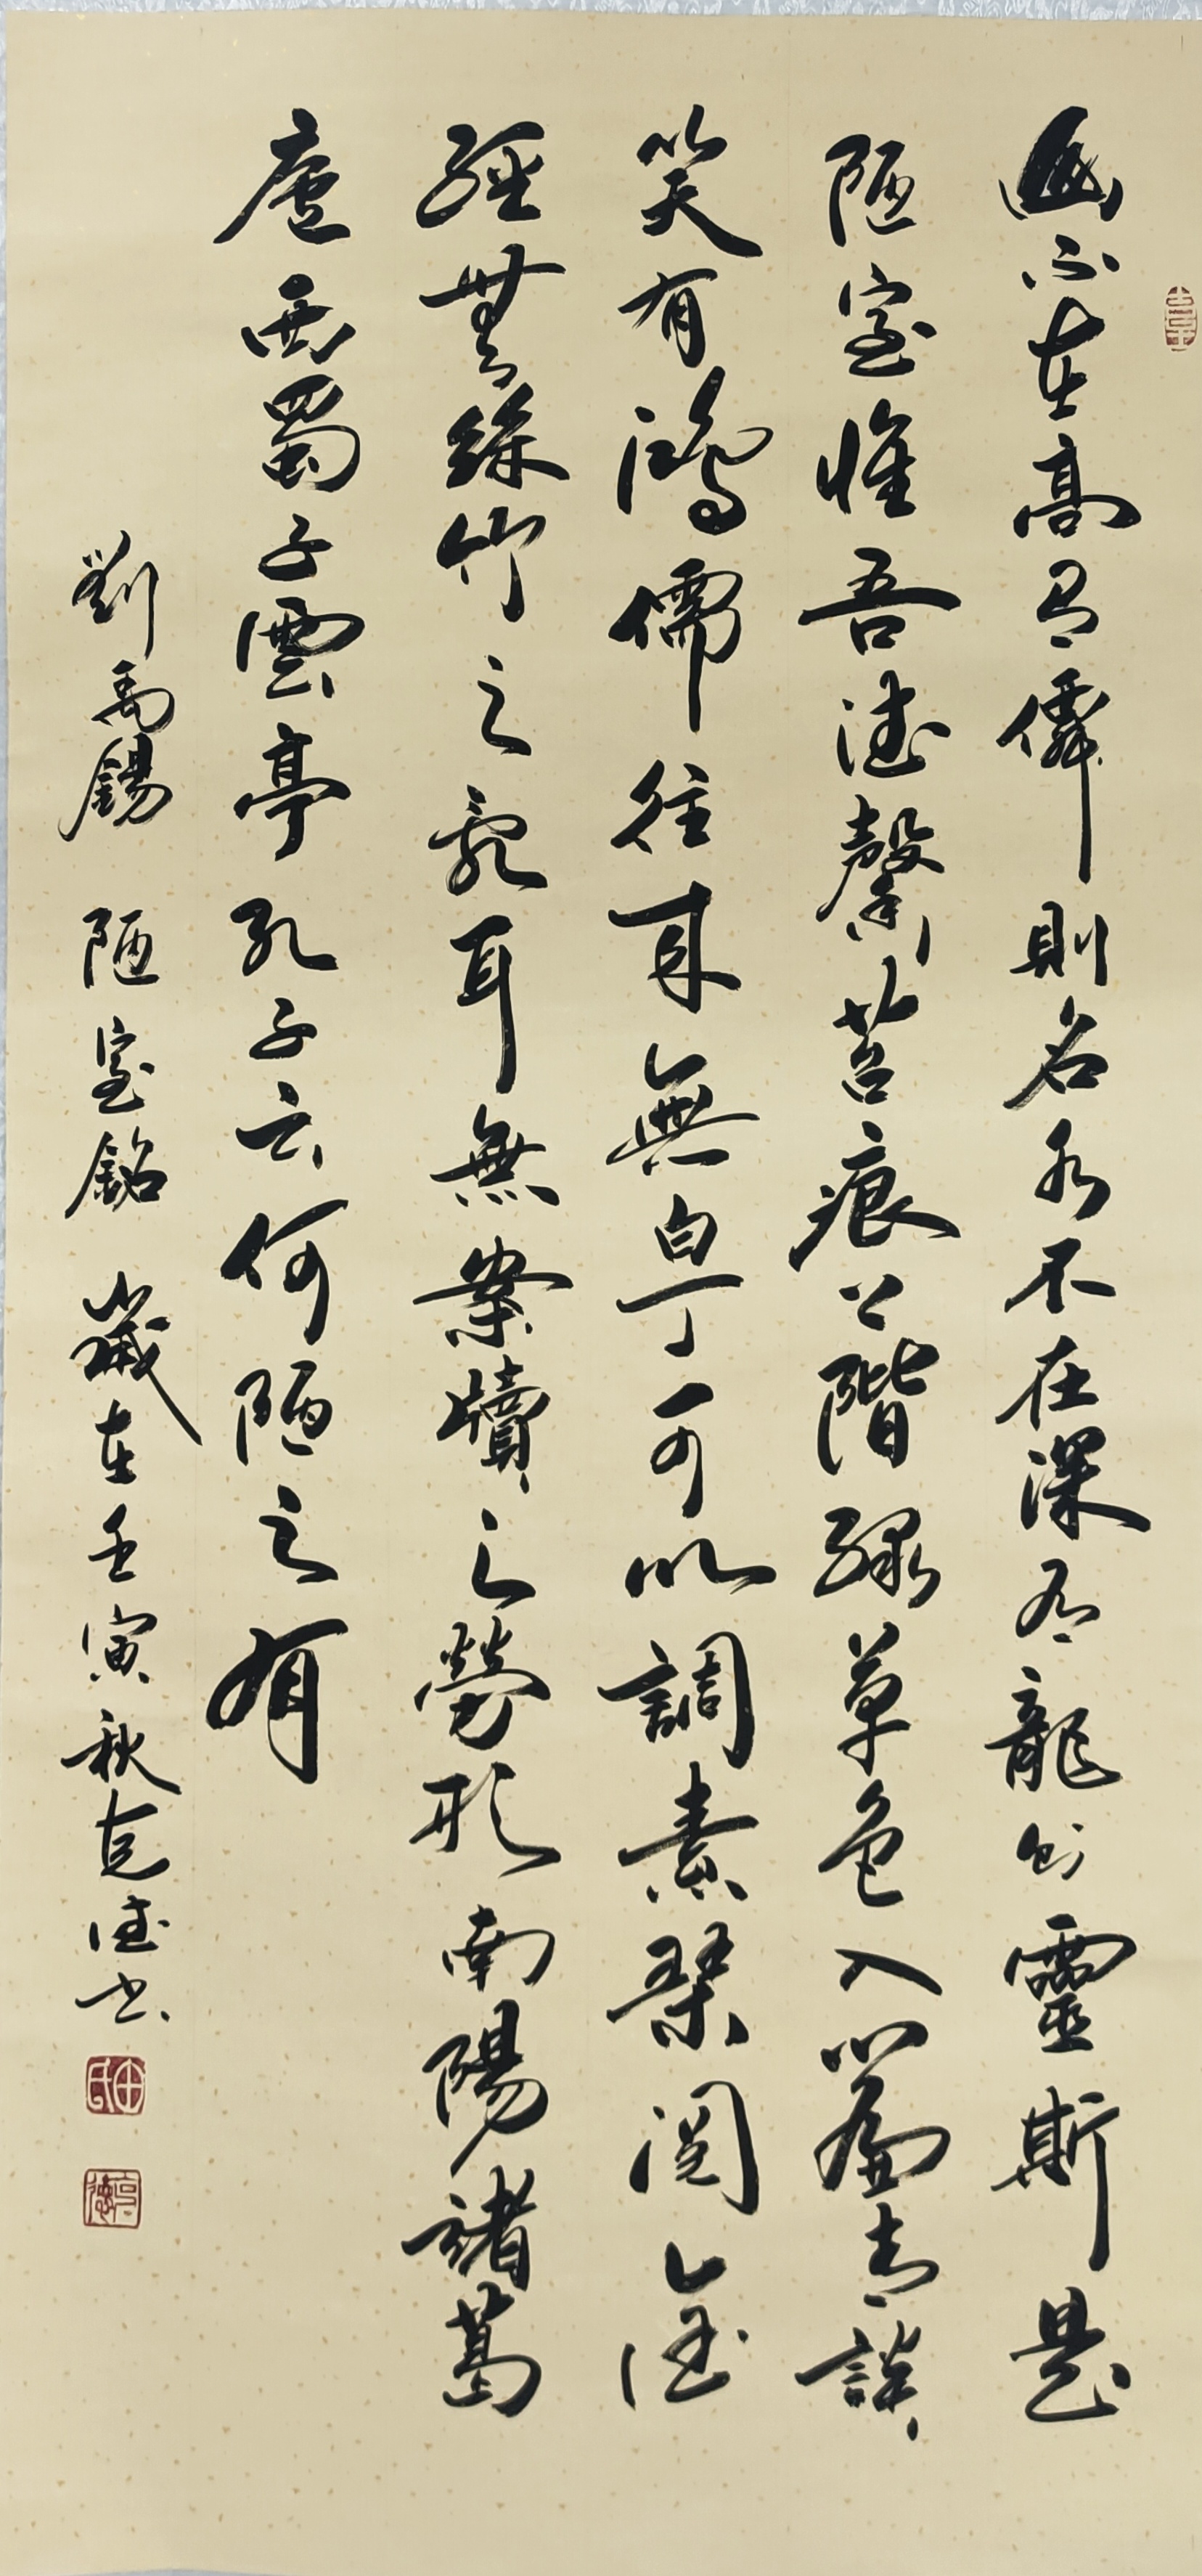 山不在高有僊則名水不在深有龍則靈斯是
陋室惟吾德馨苔痕上階緑草色入簾青談
笑有鴻儒往來無白丁可以調素琴閱金
經無絲竹之亂耳無案牘之勞形南陽諸葛
廬西蜀子雲亭孔子云何陋之有
劉禹錫 陋室銘 歲在壬寅秋克德书
田氏
克德